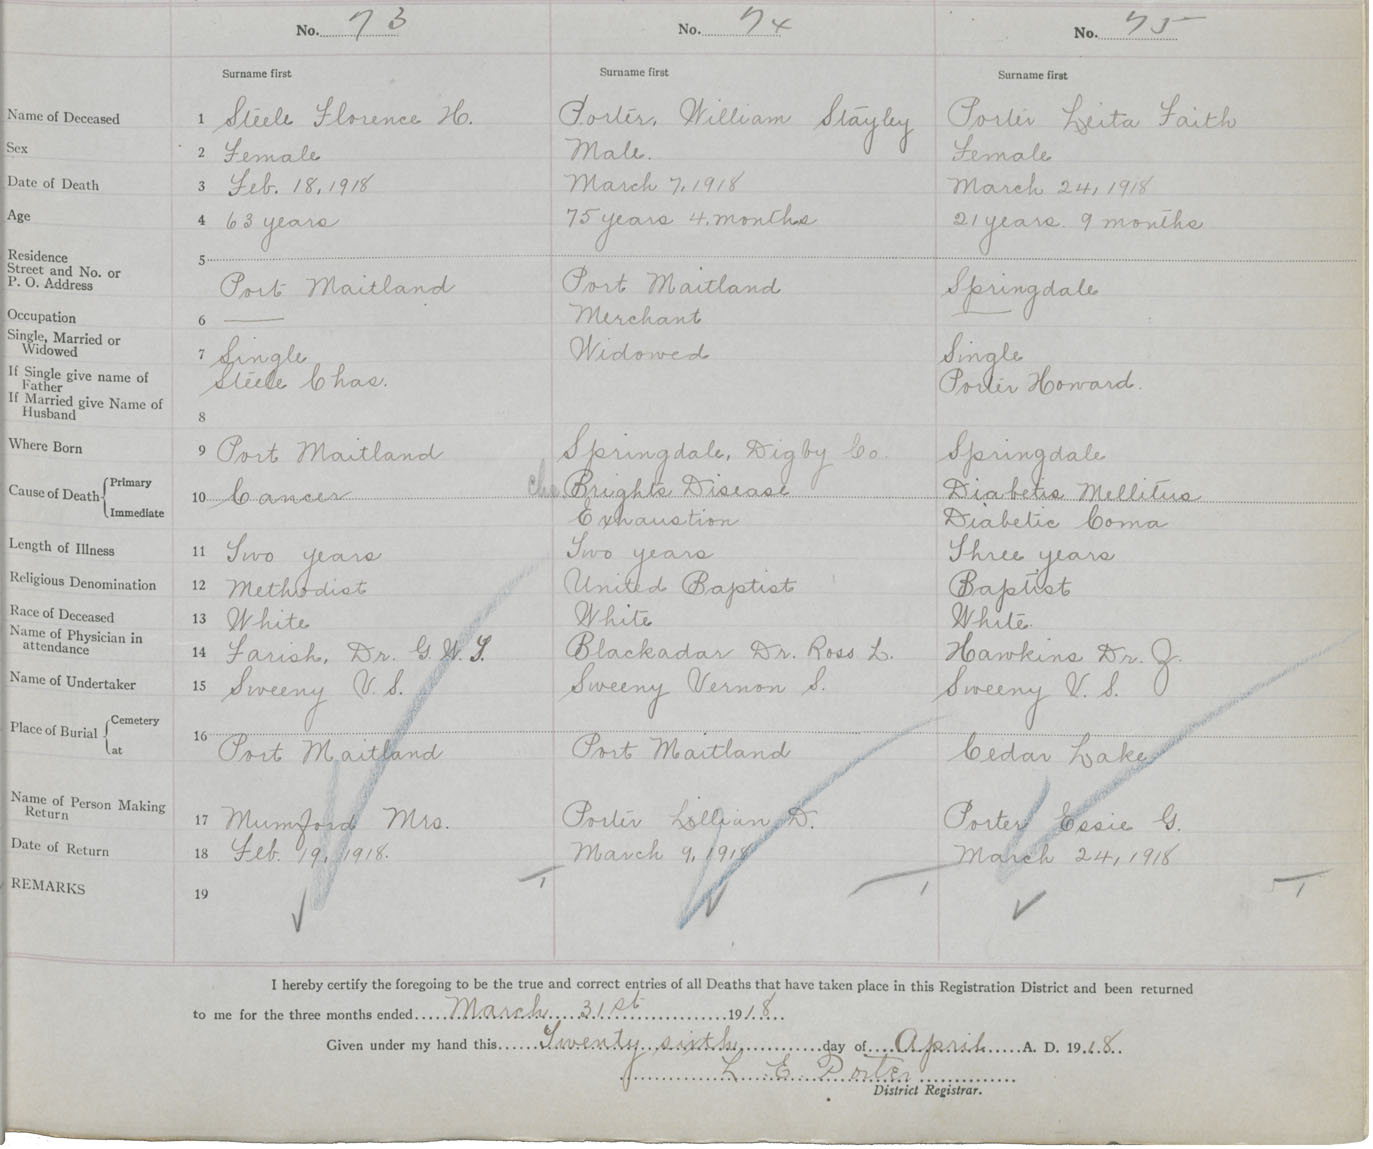 No. 73 No. 74 No. 75
Surname first Surname first Surname first
Name of Deceased 1 Steele Florence H. Porter, William Stayley Porter Leita Faith
Sex 2 Female Male. Female
Date of Death 3 Feb. 18, 1918 March 7, 1918 March 24, 1918
Age 4 63 years 75 years 4 months 21 years. 9 months
Residence
Street and No. or
P. O. Address 5 Port Maitland Port Maitland Springdale
Occupation 6 — Merchant —
Single, Married or
Widowed 7 Single Widowed Single
If Single give name of
Father Steele Chas. Porter Howard.
If Married give Name of
Husband 8
Where Born 9 Port Maitland Springdale, Digby Co. Springdale
Cause of Death Primary 10 Cancer Brights Disease Diabetis Mellitus
Immediate Exhaustion Diabetic Coma
Length of Illness 11 Two years Two years Three years
Religious Denomination 12 Methodist United Baptist Baptist
Race of Deceased 13 White White White.
Name of Physician in
attendance 14 Farish, Dr. G. W. T. Blackadar Dr. Ross L. Hawkins Dr. Z.
Name of Undertaker 15 Sweeny V. S. Sweeny Vernon S. Sweeny V. S.
Place of Burial Cemetery
at 16 Port Maitland Port Maitland Cedar Lake
Name of Person Making
Return 17 Mumford Mrs. Porter Lillian D. Porter Essie G.
Date of Return 18 Feb. 19, 1918. March 9, 1918 March 24, 1918
REMARKS 19
I hereby certify the foregoing to be the true and correct entries of all Deaths that have taken place in this Registration District and been returned
to me for the three months ended March 31st 1918
Given under my hand this Twenty sixth day of April A. D. 1918.
L. E. Porter
District Registrar.